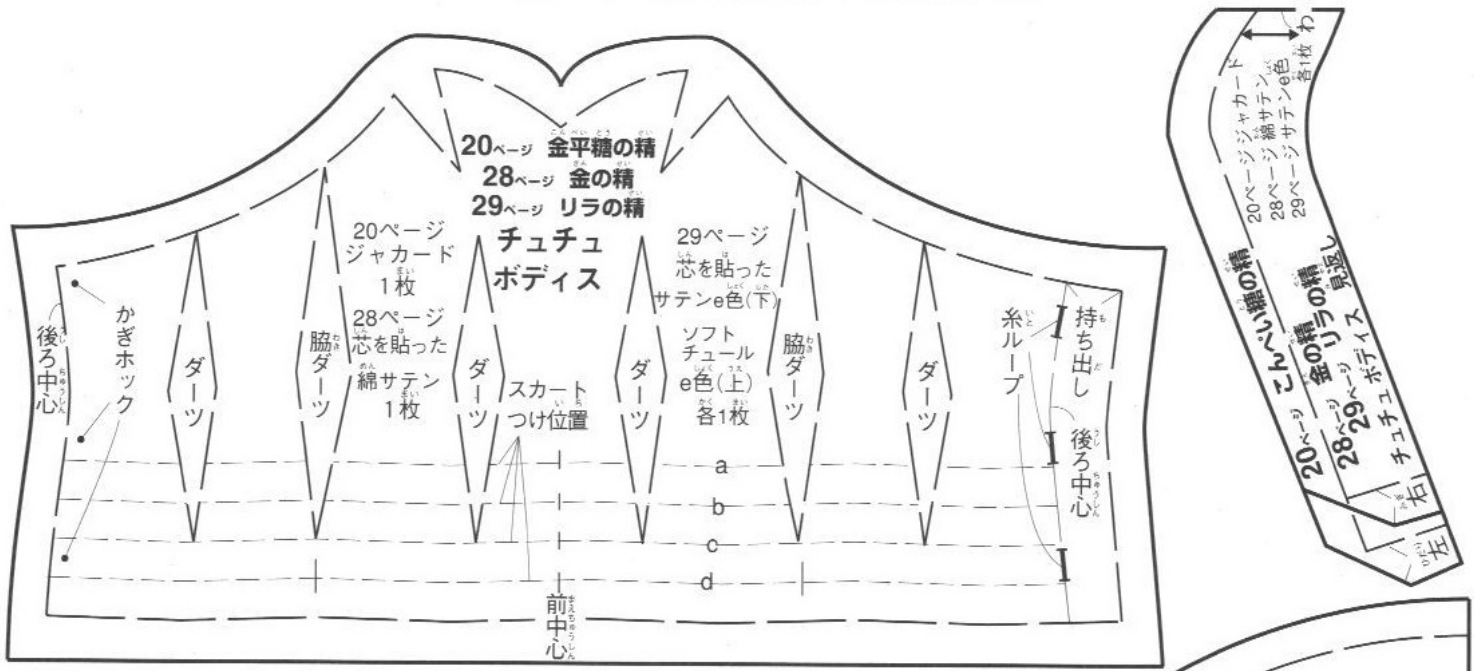 20ページ 金平糖の精
28ページ 金の精
29ページ リラの精
チュチュ
ボディス
20ページ
ジャカード
1枚
28ページ
芯を貼った
綿サテン
1枚
29ページ
芯を貼った
サテンe色(下)
ソフト
チュール
e色(上)
各1枚
後ろ中心
かぎホック
ダーツ
脇ダーツ
ダーツ
スカート
つけ位置
ダーツ
脇ダーツ
ダーツ
糸ループ
持ち出し
後ろ中心
a
b
c
d
前中心
わ
20ページ ジャカード
28ページ 綿サテン
29ページ サテンe色
各1枚
20ページ こんぺい糖の精
28ページ 金の精
29ページ リラの精
チュチュ ボディス 見返し
右
左